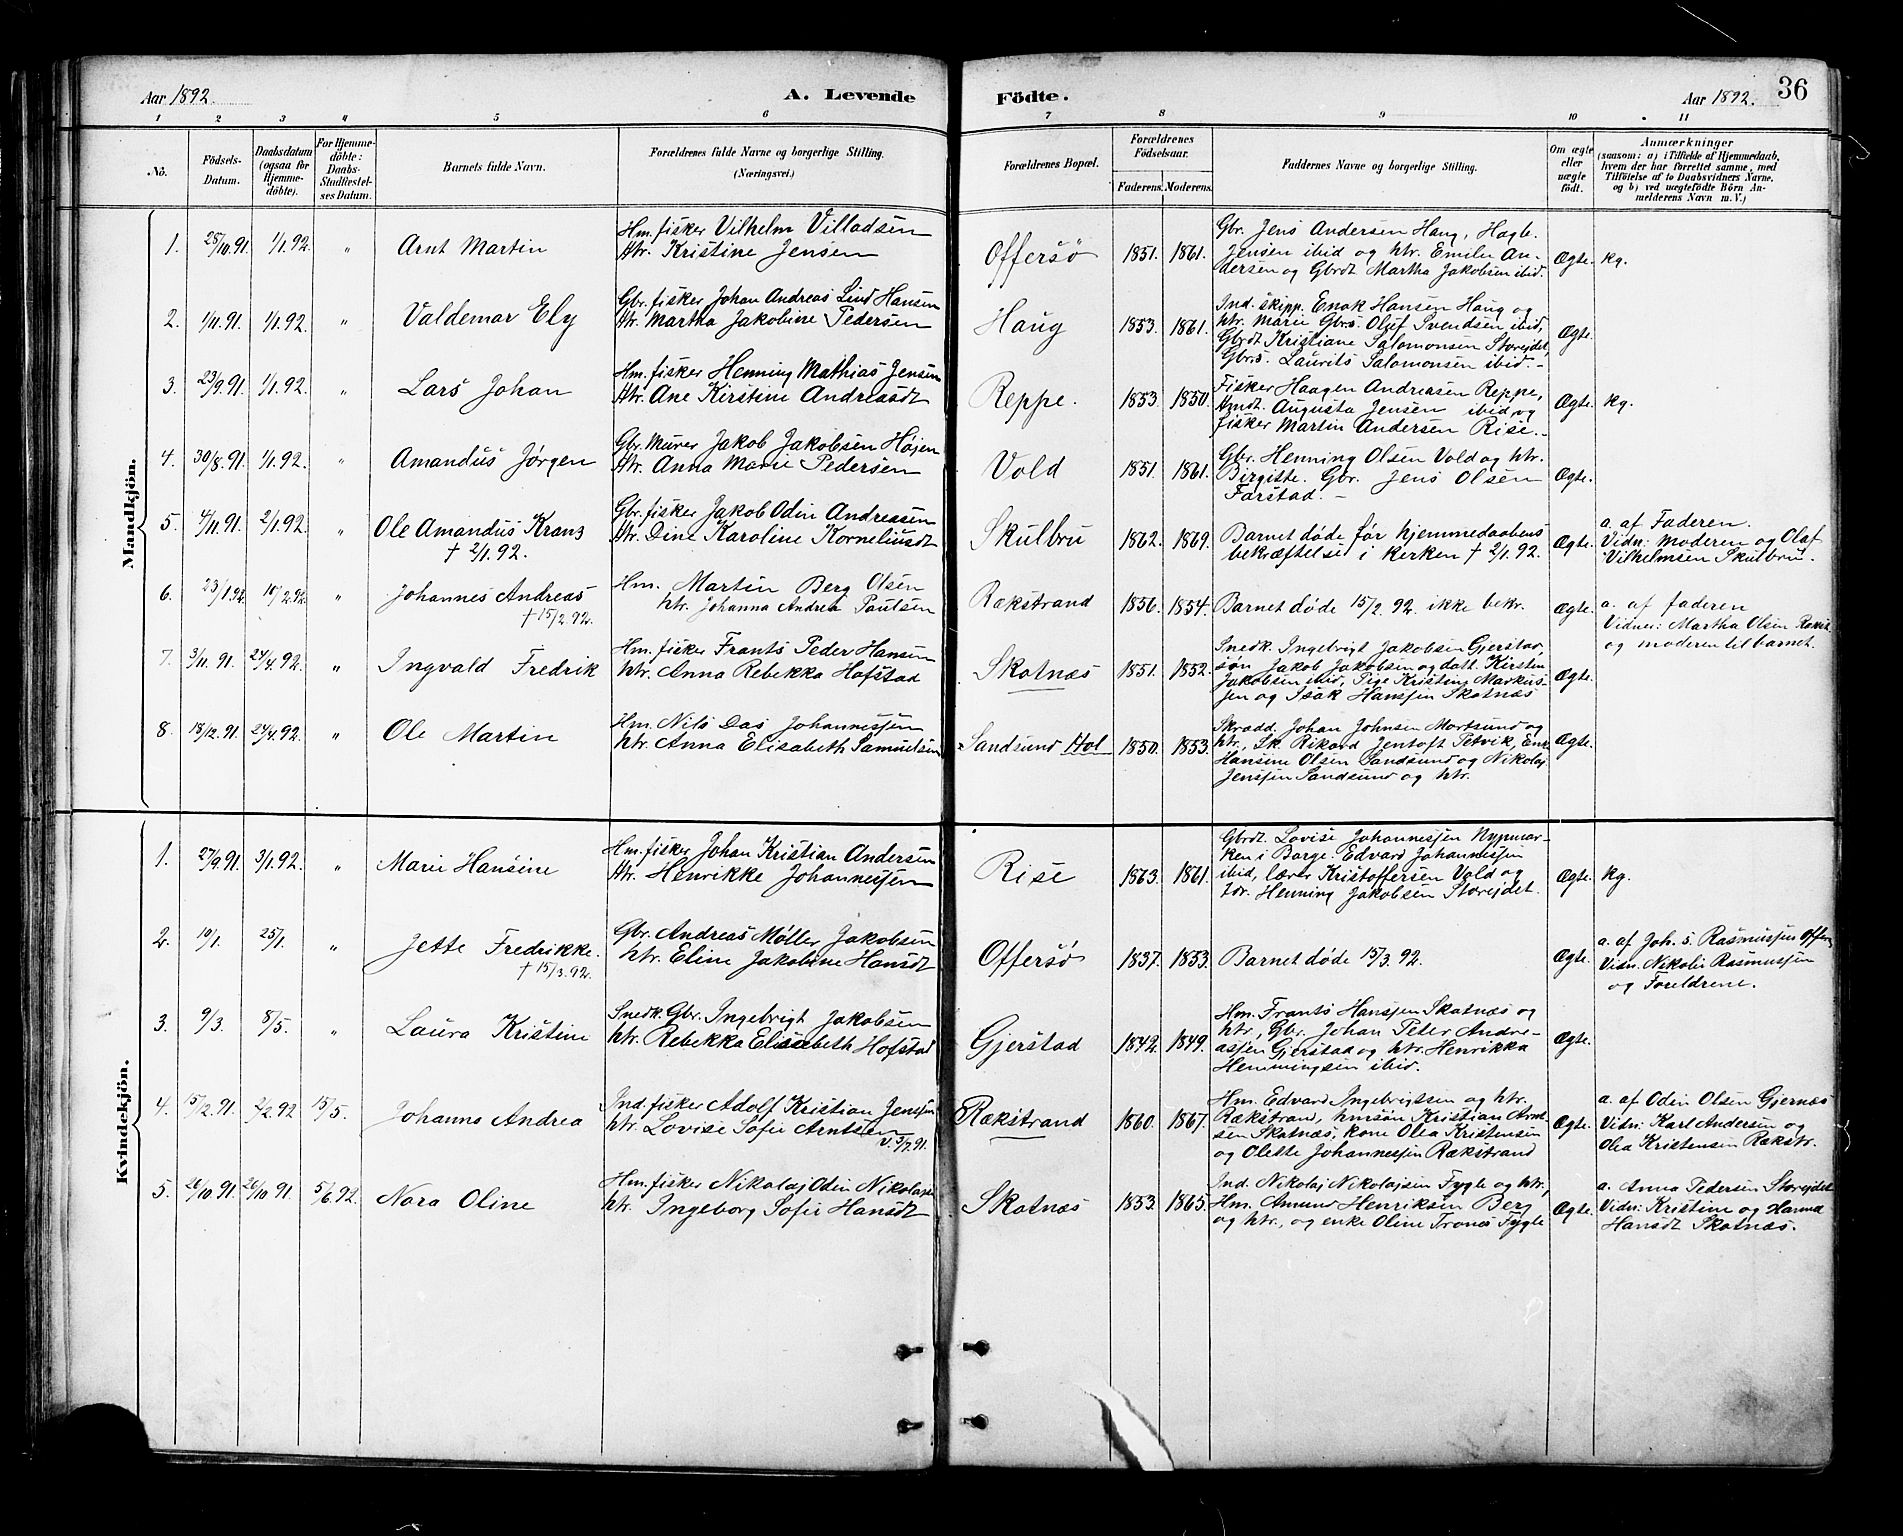 Aar 1892. A. Levende Födte. Aar 1892. 36
1 2 3 4 5 6 7 8 9 10 11
No. Födsels-Datum. Daabsdatum (ogsaa for Hjemme-döbte). For Hjemme-döbte: Daabs-Stadfæstel-ses Datum. Barnets fulde Navn. Forældrenes fulde Navne og borgerlige Stilling. (Næringsvei.) Forældrenes Bopæl. Forældrenes Födselsaar. Faderens. Moderens. Faddernes Navne og borgerlige Stilling. Om ægte eller uægte födt. Anmærkninger
(saasom: a) i Tilfælde af Hjemmedaab, hvem der har forrettet samme, med Tilföielse af to Daabsvidners Navne, og b) ved uægtefödte Börn An-melderens Navn m. V.)
Mandkjön.
1. 25/10.91. 1/1.92. " Arnt Martin
Hm. fisker Vilhelm Villadsen
Htr. Kristine Jensen
Offersø 1851. 1861.
Gbr. Jens Andersen Haug, Hagb.
Jensen ibid og htr. Emilie An-
dersen og Gbrdt Martha Jakobsen ibid.
Ægte. kg.
2. 1/11.91. 1/1.92. " Valdemar Ely
Gbr. fisker Johan Andreas Lind Hansen
Htr. Martha Jakobine Pedersen
Haug 1853. 1861.
Ind. skipp. Enok Hansen Haug og
htr. Marie Gbrs. Oluf Svendsen ibid,
Gbrdt Kristiane Salomonsen Storejdet,
Gbrs. Laurits Salomonsen ibid. -
Ægte.
3. 23/9.91. 1/1.92. " Lars Johan
Hm. fisker Henning Mathias Jensen
Htr. Ane Kirstine Andreasdt
Reppe. 1853. 1850.
Fisker Haagen Andreasen Reppe,
Hmdt. Augusta Jensen ibid og
fisker Martin Andersen Rise. -
Ægte. kg.
4. 30/8.91. 1/1.92. " Amandus Jørgen
Gbr. Murer Jakob Jakobsen Højen
Htr. Anna Marie Pedersen
Vold 1851. 1861.
Gbr. Henning Olsen Vold og htr.
Birgitte. Gbr. Jens Olsen
Farstad. -
Ægte.
5. 4/11.91. 2/1.92. " Ole Amandus Kranz
† 2/1.92.
Gbr. fisker Jakob Odin Andreasen
Htr. Dine Karoline Korneliusdt
Skulbru 1862. 1869.
Barnet døde før hjemmedaabens
bekræftelse i kerken † 2/1.92.
Ægte.
a. af Faderen.
Vidn: Moderen og Olaf
Vilhelmsen Skulbru.
6. 23/1.92. 10/2.92. " Johannes Andreas
† 15/2.92.
Hm. Martin Berg Olsen
htr. Johanna Andrea Paulsen
Rækstrand 1856. 1854.
Barnet døde 15/2.92. ikke bekr.
Ægte.
a. af faderen
Vidner: Martha Olsen Rækst
og moderen til barnet.
7. 3/11.91. 24/4.92. " Ingvald Fredrik
Hm. fisker Frants Peder Hansen
htr. Anna Rebekka Hofstad
Skotnæs 1851. 1852.
Snedk. Ingebrigt Jakobsen Gjerstad,
søn Jakob Jakobsen og datt. Kirsten
Jakobsen ibid, Pige Kristine Markus-
sen og Isak Hanssen Skotnæs
Ægte.
8. 18/12.91. 24/4.92. " Ole Martin
Hm. Nils Das Johannessen
htr. Anna Elisabeth Samuelsen
Sandsund Hol 1850. 1853.
Skradd. Johan Johnsen Mortsund og
htr., Sk. Rikard Jentoft Petvik, Enke
Hansine Olsen Sandsund og Nikolaj
Jenssen Sandsund og htr.
Ægte.
Kvindekjön.
1. 27/9.91. 3/1.92. " Marie Hansine
Hm. fisker Johan Kristian Andersen
Htr. Henrikke Johannessen
Rise 1863. 1861.
Gbrdt. Lovise Johannessen Nypmar-
ken i Borge. Edvard Johannessen
ibid, lærer Kristoffersen Vold og
Henning Jakobsen Storejdet.
Ægte. kg.
2. 10/1. 25/1. " Jette Fredrikke.
† 15/3.92.
Gbr. Andreas Møller Jakobsen
htr. Eline Jakobine Hansdt
Offersø 1837. 1853.
Barnet døde 15/3.92.
Ægte.
a. af Joh. S. Rasmussen Offers
Vidn. Nikolai Rasmussen
og Foreldrene.
3. 9/3. 8/5. " Laura Kristine
Snedk. Gbr. Ingebrigt Jakobsen
htr. Rebekka Elisabeth Hofstad
Gjerstad 1842. 1849.
Hm. Frants Hanssen Skotnæs og
htr, Gbr. Johan Peter Andre-
assen Gjerstad og htr. Henrikka
Hemmingsen ibid.
Ægte.
4. 15/12.91. 2/2.92 15/5. Johanna Andrea
Ind. fisker Adolf Kristian Jenssen
htr. Lovise Sofie Arntsen
v. 3/9.91.
Rækstrand 1860. 1867.
Hm. Edvard Ingebrigtsen og htr.
Rækstran, hmsøn Kristian Arnt-
sen Skotnæs, kone Olea Kristensen
og Olette Johannessen Rækstrand
Ægte.
a. af Odin Olsen Gjernæs
Vidn: Karl Andersen og
Olea Kristensen Rækstr.
5. 26/10.91. 26/10 91. 5/6.92. Nora Oline
Hm. fisker Nikolaj Odin Nikolajs
htr. Ingeborg Sofie Hansdt
Skotnæs 1853. 1865.
Ind. Nikolaj Nikolajsen Fygle og htr,
Hm. Amund Henriksen Berg
og htr., og enke Oline Tronæs Fygle
Ægte.
a. Anna Pedersen Storejdet
Vidn: Kristine og Hanna
Hansdt Skotnæs.